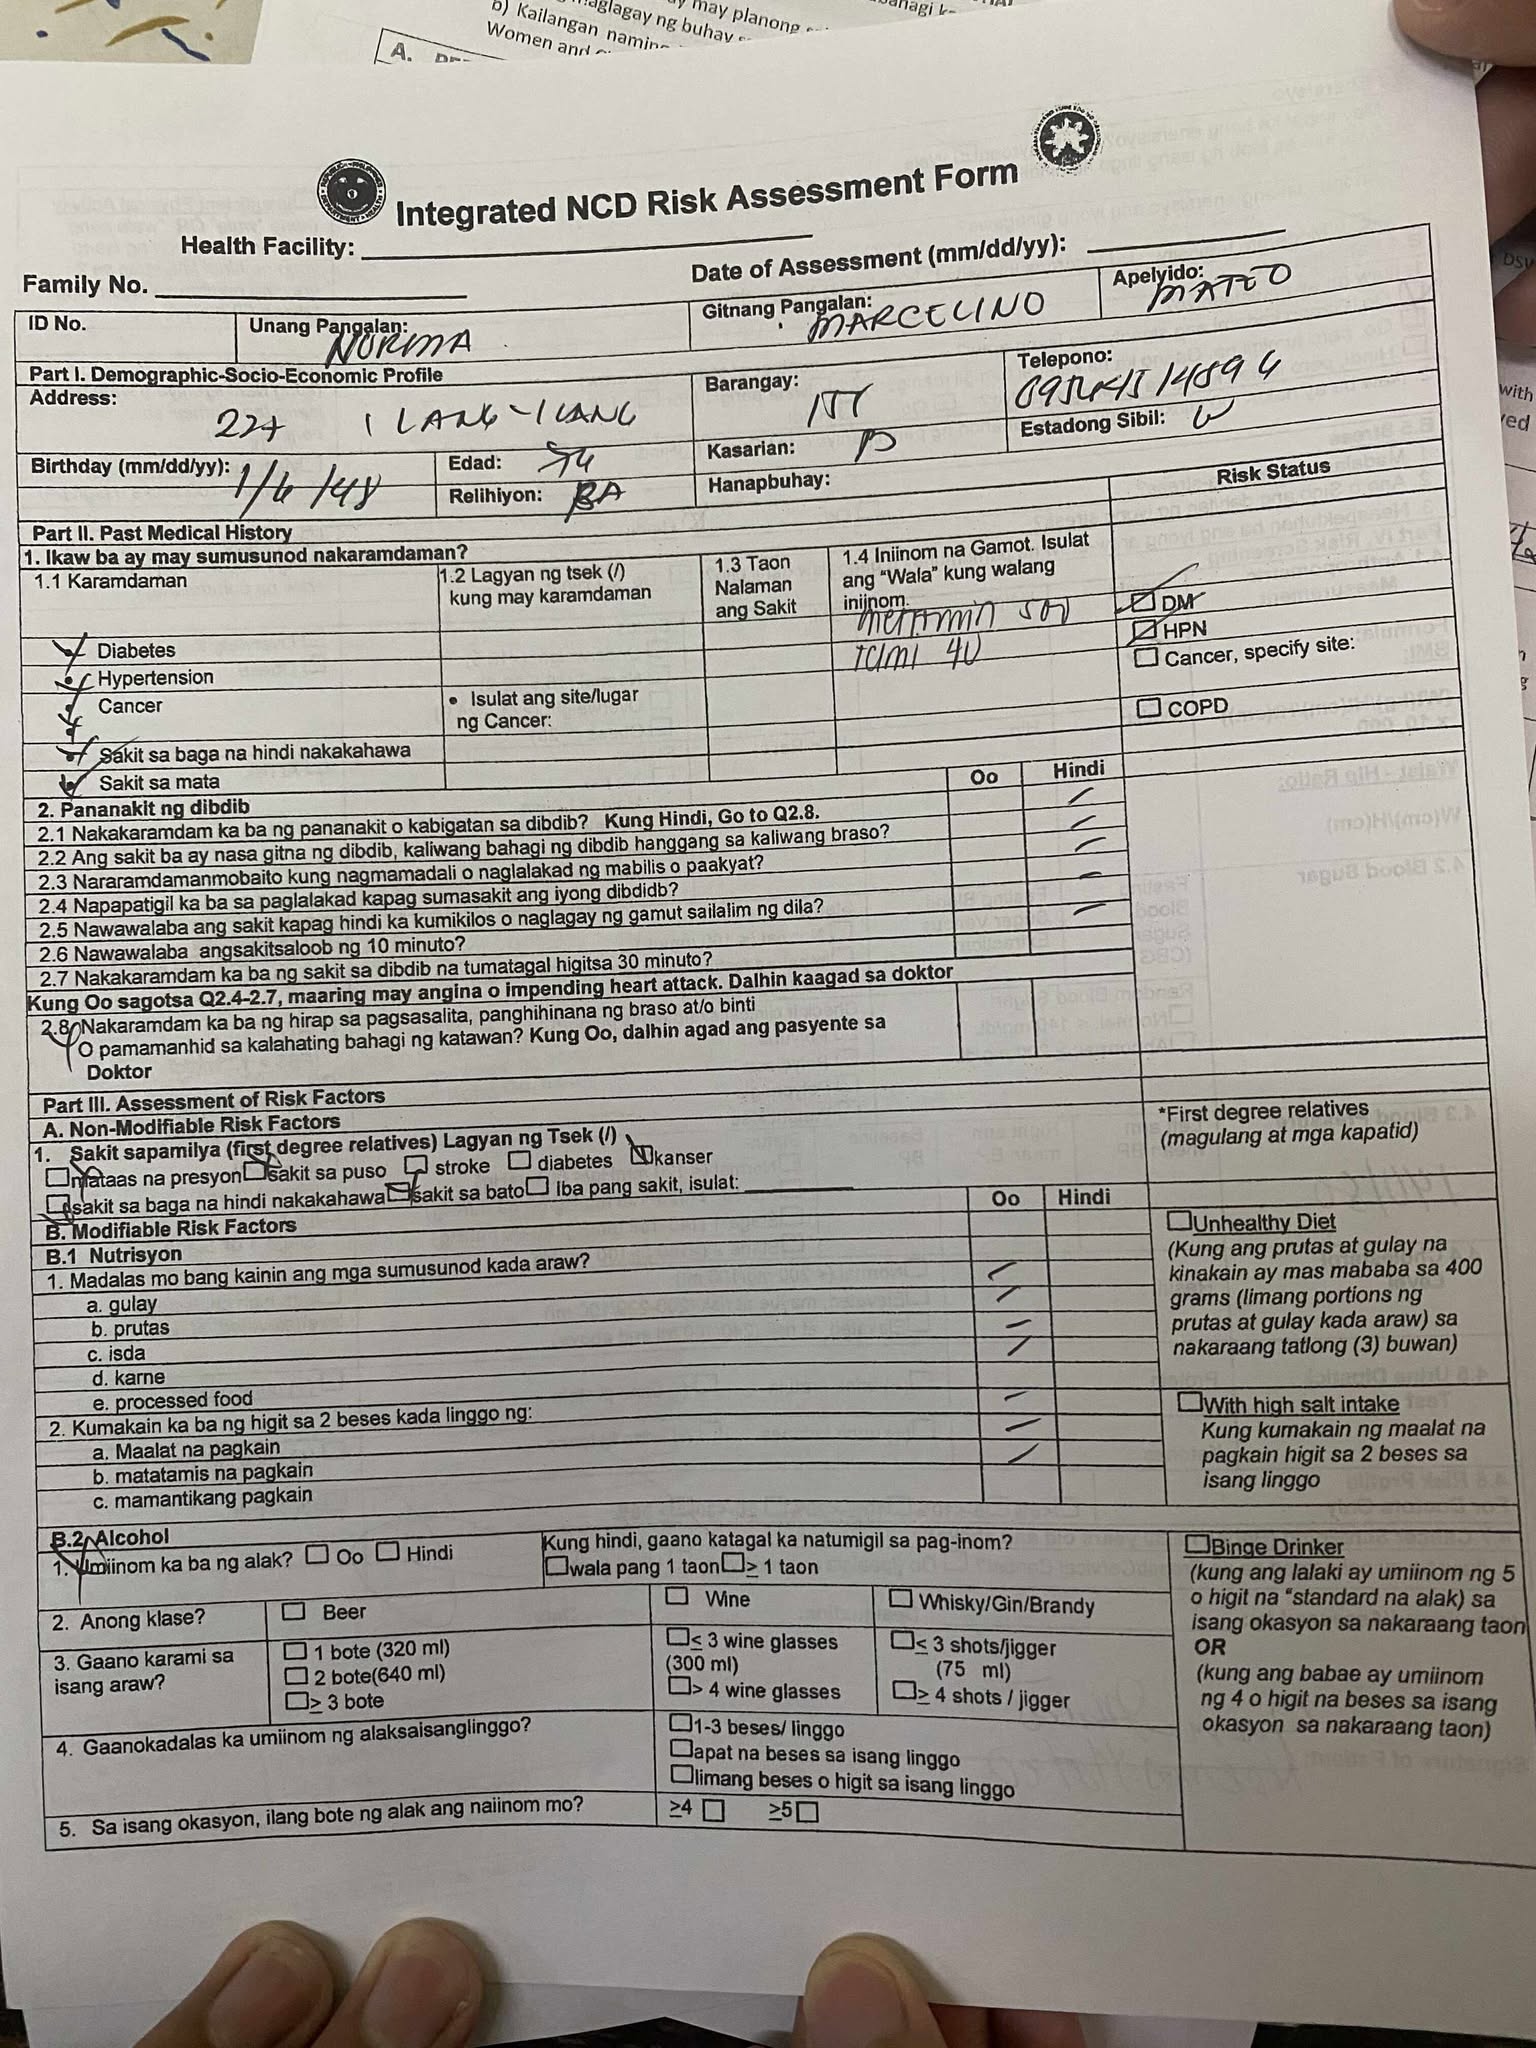 may planong
maglagay ng buhay
b) Kailangan namin
Women and
A.
Integrated NCD Risk Assessment Form
Health Facility:
Date of Assessment (mm/dd/yy):
Family No.
ID No.
Unang Pangalan: NORMA
Gitnang Pangalan: MARCELINO
Apelyido: MATEO
Part I. Demographic-Socio-Economic Profile
Address: 227 ILANG-ILANG
Barangay:
Telepono:
Birthday (mm/dd/yy): 1/6/48
Edad: 74
Kasarian:
Estadong Sibil: W
Relihiyon: BA
Hanapbuhay:
Risk Status
Part II. Past Medical History
1. Ikaw ba ay may sumusunod nakaramdaman?
1.1 Karamdaman
1.2 Lagyan ng tsek (/) kung may karamdaman
1.3 Taon Nalaman ang Sakit
1.4 Iniinom na Gamot. Isulat ang “Wala” kung walang iniinom.
Diabetes
500
DM
Hypertension
40
HPN
Cancer
• Isulat ang site/lugar ng Cancer:
Cancer, specify site:
Sakit sa baga na hindi nakakahawa
COPD
Sakit sa mata
2. Pananakit ng dibdib
Oo Hindi
2.1 Nakakaramdam ka ba ng pananakit o kabigatan sa dibdib? Kung Hindi, Go to Q2.8.
2.2 Ang sakit ba ay nasa gitna ng dibdib, kaliwang bahagi ng dibdib hanggang sa kaliwang braso?
2.3 Nararamdamanmobaito kung nagmamadali o naglalakad ng mabilis o paakyat?
2.4 Napapatigil ka ba sa paglalakad kapag sumasakit ang iyong dibdidb?
2.5 Nawawalaba ang sakit kapag hindi ka kumikilos o naglagay ng gamut sailalim ng dila?
2.6 Nawawalaba angsakitsaloob ng 10 minuto?
2.7 Nakakaramdam ka ba ng sakit sa dibdib na tumatagal higitsa 30 minuto?
Kung Oo sagotsa Q2.4-2.7, maaring may angina o impending heart attack. Dalhin kaagad sa doktor
2.8 Nakaramdam ka ba ng hirap sa pagsasalita, panghihinana ng braso at/o binti
O pamamanhid sa kalahating bahagi ng katawan? Kung Oo, dalhin agad ang pasyente sa
Doktor
Part III. Assessment of Risk Factors
A. Non-Modifiable Risk Factors
1. Sakit sapamilya (first degree relatives) Lagyan ng Tsek (/)
mataas na presyon sakit sa puso stroke diabetes kanser
sakit sa baga na hindi nakakahawa sakit sa bato Iba pang sakit, isulat:
*First degree relatives
(magulang at mga kapatid)
Oo Hindi
B. Modifiable Risk Factors
B.1 Nutrisyon
1. Madalas mo bang kainin ang mga sumusunod kada araw?
a. gulay
b. prutas
c. isda
d. karne
e. processed food
2. Kumakain ka ba ng higit sa 2 beses kada linggo ng:
a. Maalat na pagkain
b. matatamis na pagkain
c. mamantikang pagkain
Unhealthy Diet
(Kung ang prutas at gulay na
kinakain ay mas mababa sa 400
grams (limang portions ng
prutas at gulay kada araw) sa
nakaraang tatlong (3) buwan)
With high salt intake
Kung kumakain ng maalat na
pagkain higit sa 2 beses sa
isang linggo
B.2 Alcohol
1. Umiinom ka ba ng alak? Oo Hindi
Kung hindi, gaano katagal ka natumigil sa pag-inom?
wala pang 1 taon ≥ 1 taon
2. Anong klase?
Beer
Wine
Whisky/Gin/Brandy
3. Gaano karami sa
isang araw?
1 bote (320 ml)
2 bote(640 ml)
≥ 3 bote
≤ 3 wine glasses
(300 ml)
> 4 wine glasses
≤ 3 shots/jigger
(75 ml)
≥ 4 shots / jigger
4. Gaanokadalas ka umiinom ng alaksaisanglinggo?
1-3 beses/ linggo
apat na beses sa isang linggo
limang beses o higit sa isang linggo
5. Sa isang okasyon, ilang bote ng alak ang naiinom mo?
≥4 ≥5
Binge Drinker
(kung ang lalaki ay umiinom ng 5
o higit na “standard na alak) sa
isang okasyon sa nakaraang taon
OR
(kung ang babae ay umiinom
ng 4 o higit na beses sa isang
okasyon sa nakaraang taon)